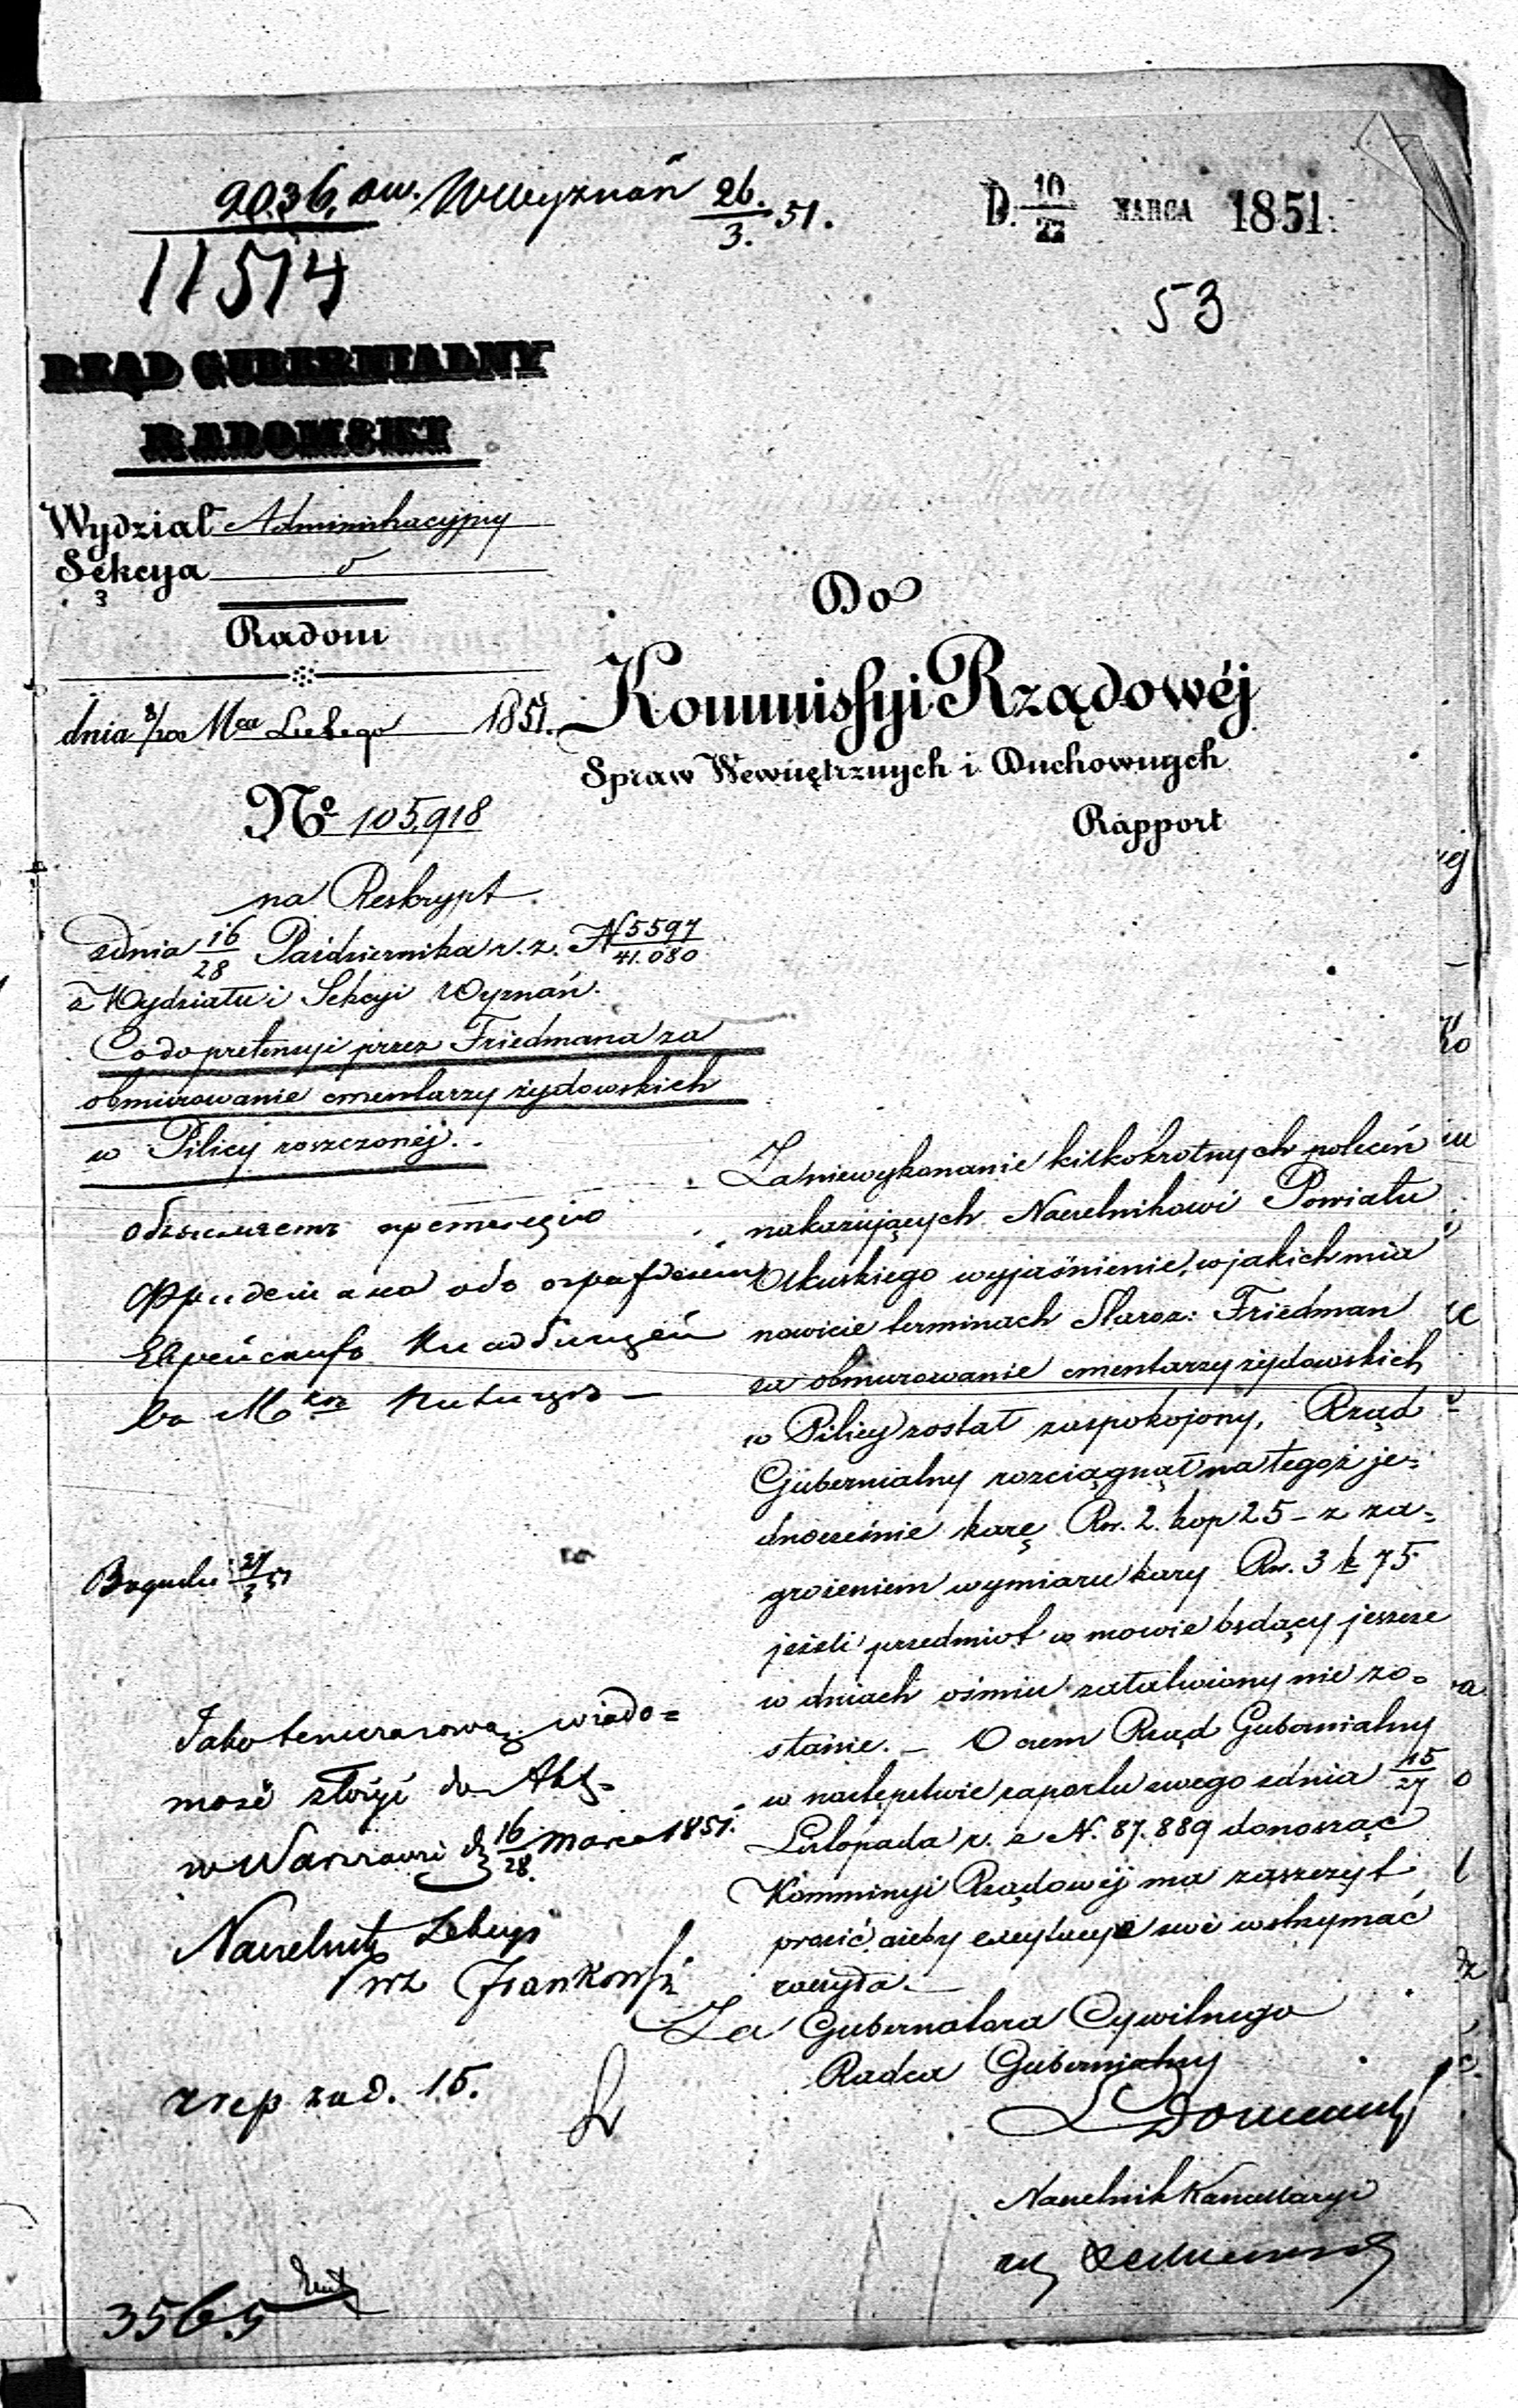 2036. Ww. WWyznań 26./3. 51.
D. 10/22 MARCA 1851.
11514
53
RZĄD GUBERNIALNY
RADOMSKI
Wydział Administracyjny
Sekcya
3
Radom
dnia 8/20 Mca Lutego 1851.
No 105,918
Do
Kommissyi Rządowéj
Spraw Wewnętrznych i Duchownych
Rapport
na Reskrypt
z dnia 16/28 Października r. z. N 5597/41.080
z Wydziału i Sekcyi Wyznań.
Co do pretensyi przez Friedmana za
obmurowanie cmentarzy żydowskich
w Pilicy roszczonéj.
Za niewykonanie kilkokrotnych poleceń
nakazujących Naczelnikowi Powiatu
Olkuskiego wyjaśnienie, w jakich mia
nowicie terminach Staroz: Friedman
za obmurowanie cmentarzy żydowskich
w Pilicy został zaspokojony, Rząd
Gubernialny rozciągnął na tegoż je=
dnocześnie karę Rsr. 2. kop 25 – z za=
grożeniem wymiaru kary Rsr. 3 k 75
jeżeli przedmiot w mowie będący jeszcze
w dniach ośmiu załatwiony nie zo=
stanie. – O czem Rząd Gubernialny
w następstwie raportu swego z dnia 15/27
Listopada r. z N. 87.889 donosząc
Kommissyi Rządowéj ma zaszczyt
prosić, ażeby excytacye swe wstrzymać
raczyła. –
Za Gubernatora Cywilnego
Radca Gubernialny
Naczelnik Kancellaryi
Jako tymczasową wiado=
mość złożyć do Akt.
w Warszawie d 16/28. Marca 1851.
Naczelnik Sekcyi
15.
3565